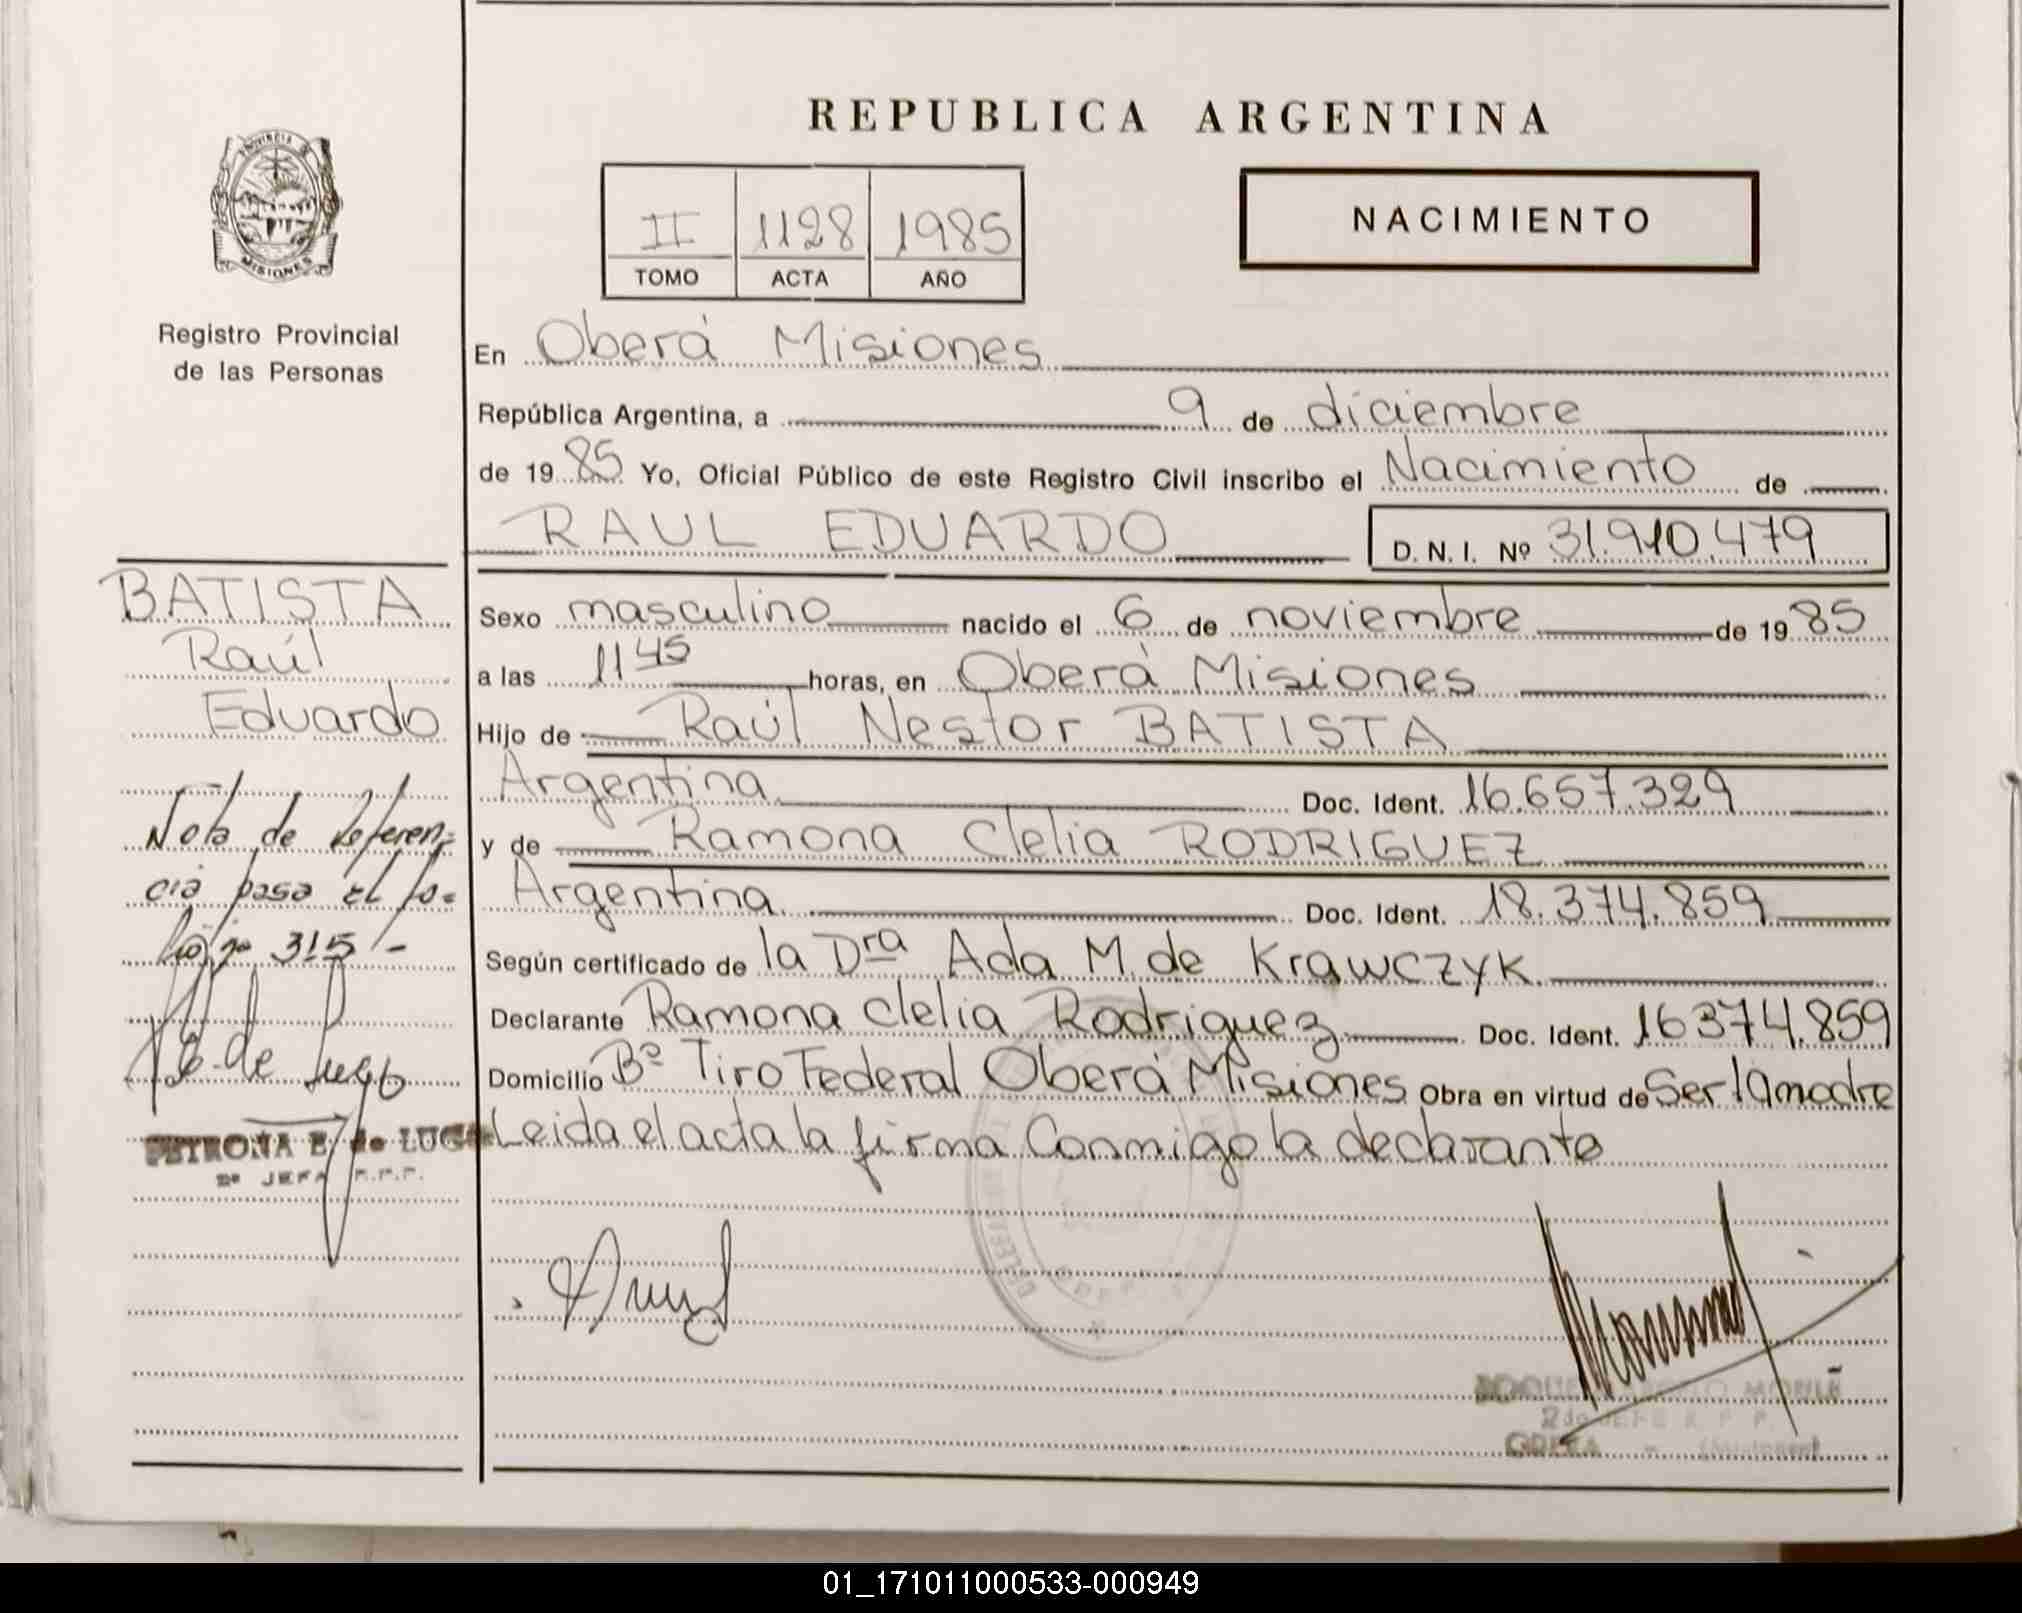 REPUBLICA ARGENTINA
PROVINCIA DE
MISIONES
Registro Provincial
de las Personas
II 1128 1985
TOMO ACTA AÑO
NACIMIENTO
En Oberá Misiones
República Argentina, a 9 de diciembre
de 1985 Yo, Oficial Público de este Registro Civil inscribo el Nacimiento de
RAUL EDUARDO D. N. I. Nº 31.910.479
BATISTA
Raúl
Eduardo
Sexo masculino nacido el 6 de noviembre de 1985
a las 11 45 horas, en Oberá Misiones
Hijo de Raúl Nestor BATISTA
Argentina Doc. Ident. 16.657.329
y de Ramona Clelia RODRIGUEZ
Argentina Doc. Ident. 18.374.859
Según certificado de la Dra Ada M. de Krawczyk
Declarante Ramona Clelia Rodriguez Doc. Ident. 16374.859
Domicilio Bº Tiro Federal Oberá Misiones Obra en virtud de Ser la madre
Leida el acta la firma Conmigo la declarante
Nota de Referen-
cia pasa el fo-
lio nº 315-
PETRONA E. de LUGO
2º JEFA R.P.P.
2do JEFE R. P. P.
OBERA - (Misiones)
01_171011000533-000949